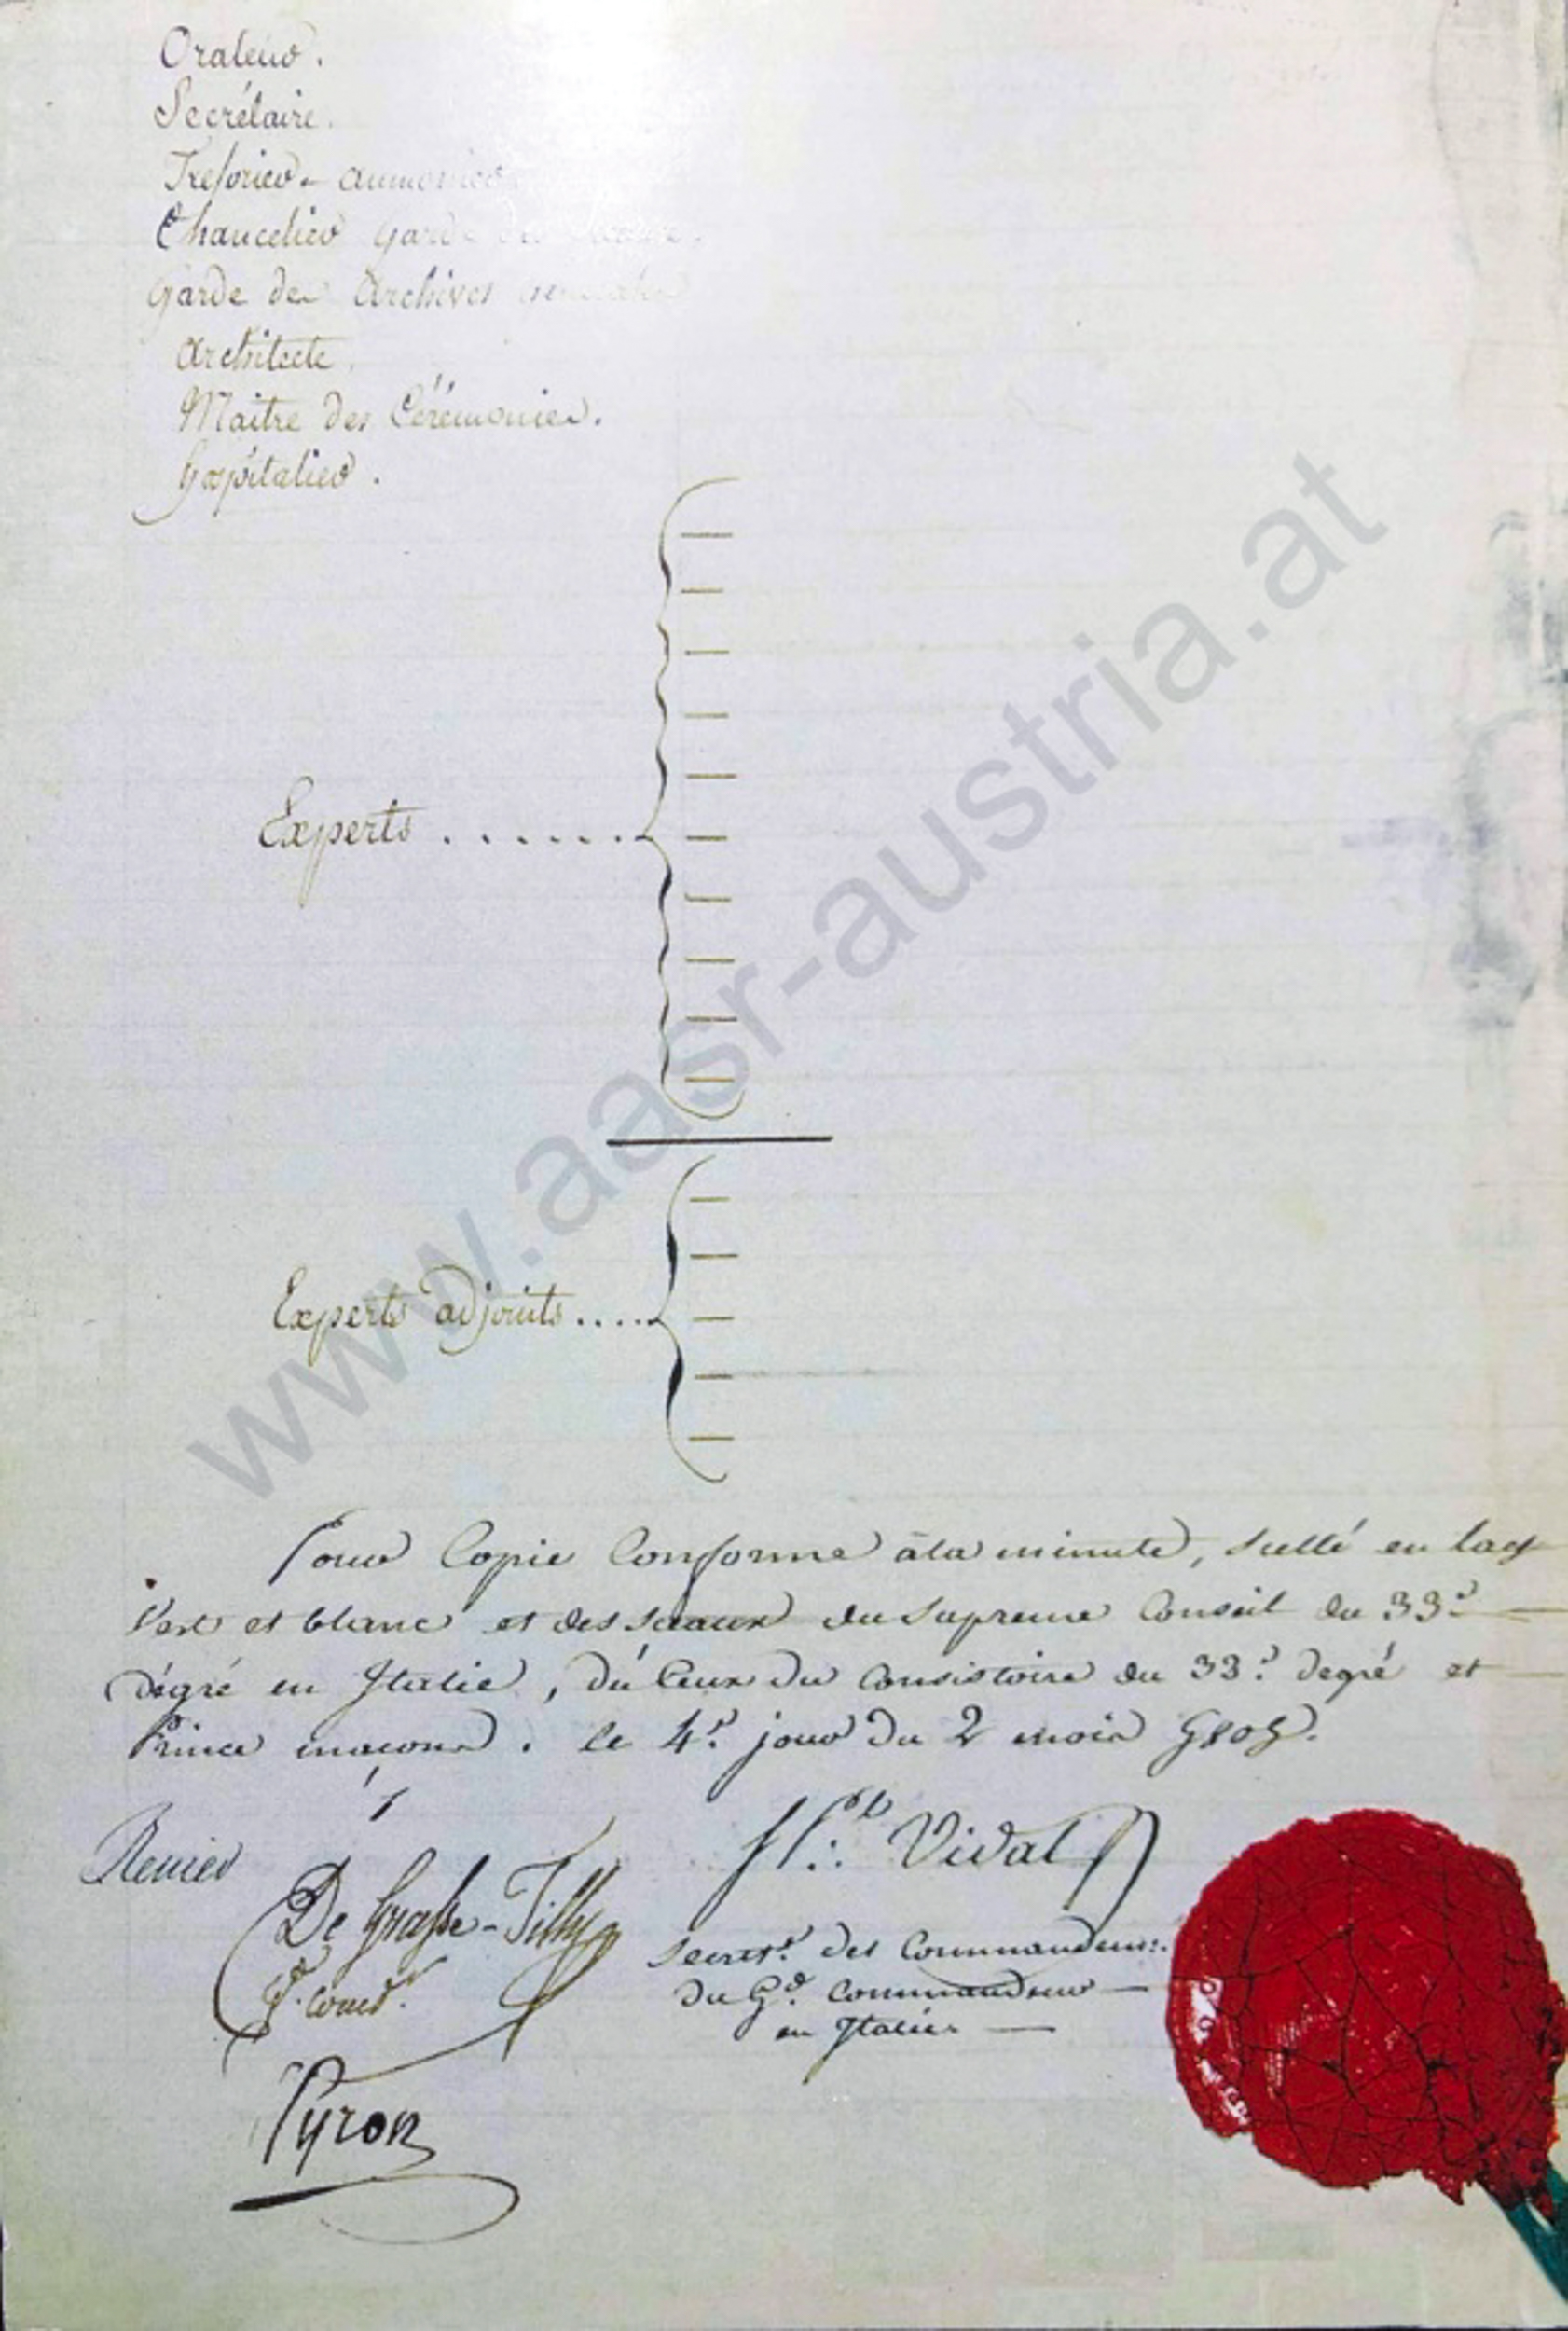 Orateur.
Secrétaire.
Tresorier - aumonier
Chancelier garde des Sceaux.
Garde des Archives
Architecte.
Maitre des Cérémonies.
hospitalier.
Experts ......
Experts adjoints ....
Pour Copie Conforme à la minute, scellé en lacs
Vert et blanc et des sceaux du Supreme Conseil du 33.e
dégré en Italie, du Ceux du Consistoire du 33.e degré et
Prince maçons. le 4.e jour du 2 mois 5805.
Renier
De Grasse-Tilly
Vidal
Secret.re des Commandemens
du Gd. Commandeur
en Italie
Pyron
www.aasr-austria.at